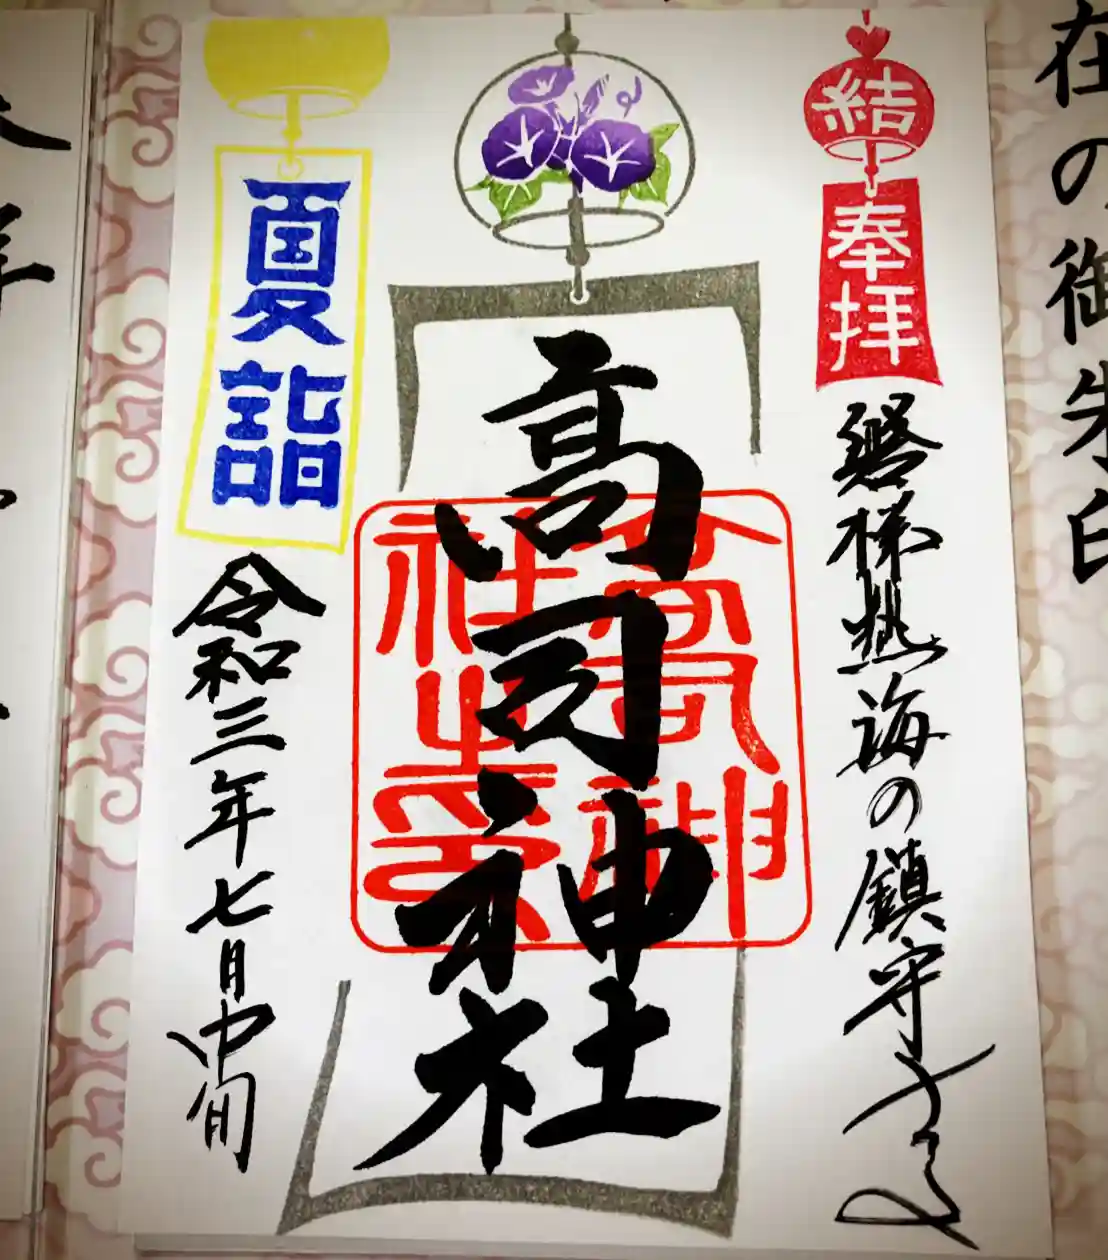 在の御朱印
結
奉拝
磐梯熱海の鎮守
高司神社
高司神
社之印
夏詣
令和三年七月中旬